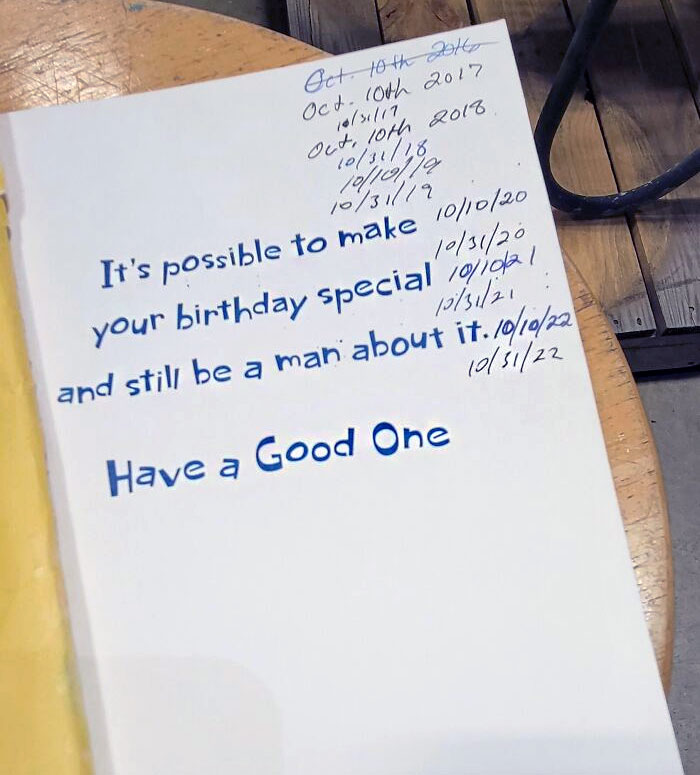 Oct. 10th 2016
Oct. 10th 2017
10/31/17
Oct. 10th 2018
10/31/18
10/10/19
10/31/19
It's possible to make 10/10/20
10/31/20
your birthday special 10/10/21
10/31/21
and still be a man about it. 10/10/22
10/31/22
Have a Good One